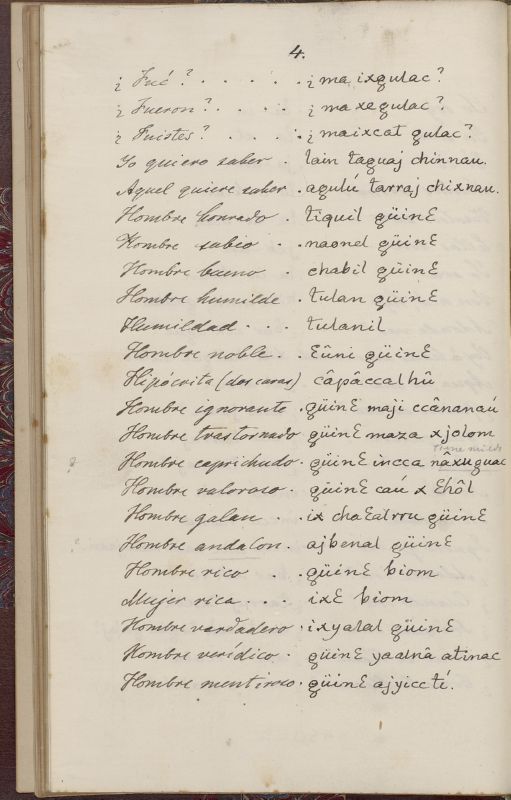 4.
¿ Fué? . . . . . ¿ ma ixgulac?
¿ Fueron? . . . . ¿ ma xegulac?
¿ Fuistes? . . . . ¿ maixcat gulac?
Yo quiero saber . lain taguaj chinnau.
Aquel quiere saber . agulú tarraj chixnau.
Hombre honrado . tiquil güinƐ
Hombre sabio . . naonel güinƐ
Hombre bueno . chabil güinƐ
Hombre humilde . tulan güinƐ
Humildad . . . tulanil
Hombre noble . . Ɛûni güinƐ
Hipócrita (dos caras) câpâccalhû
Hombre ignorante . güinƐ maji ccânanaú
Hombre trastornado güinƐ maza xjolom
Hombre caprichudo . güinƐ incca nâxuguac
Hombre valoroso . güinƐ caú x Ɛhôl
Hombre galan . . ix chaƐalrru güinƐ
Hombre andalon . ajbenal güinƐ
Hombre rico . . güinƐ biom
Mujer rica . . . ixƐ biom
Hombre vardadero . ixyalal güinƐ
Hombre verídico . güinƐ yaalnâ atinac
Hombre mentiroso . güinƐ ajyiccti.